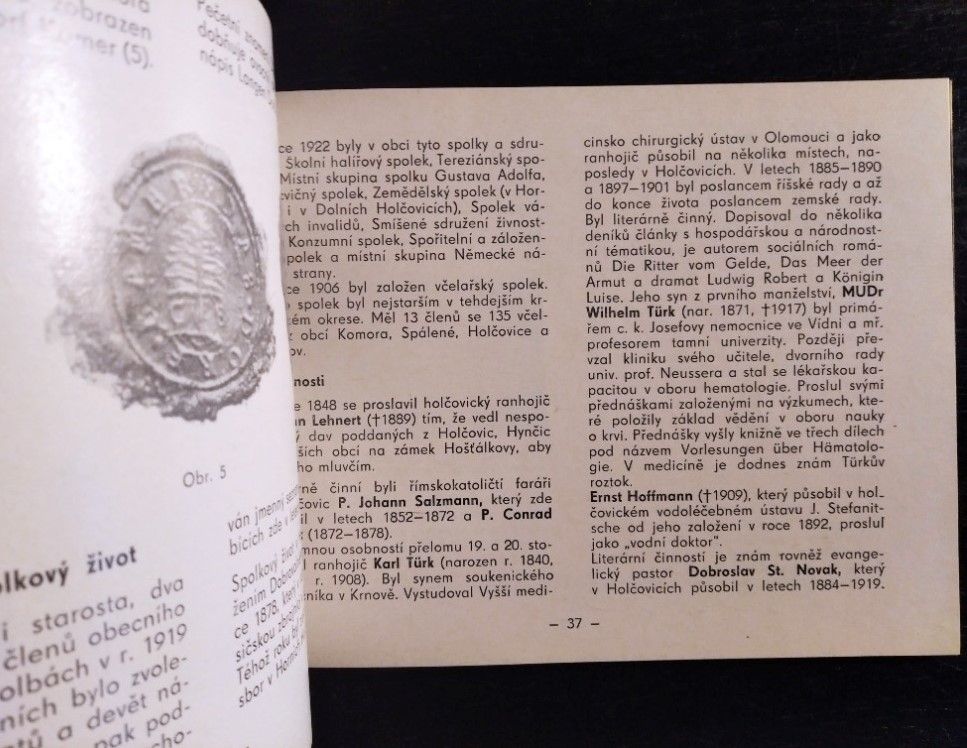 zobrazen
mer (5).
Pečetní
nápis
Obr. 5
olkový život
i starosta, dva
členů obecního
olbách v r. 1919
ních bylo zvole-
tů a devět ná-
pak pod-
cho-
ván jmenný
bicích zde v
Spolkový život
žením
ce 1878,
sičskou
Téhož roku
sbor v
ce 1922 byly v obci tyto spolky a sdru-
Školní halířový spolek, Tereziánský spo-
Místní skupina spolku Gustava Adolfa,
cvičný spolek, Zemědělský spolek (v Hor-
i v Dolních Holčovicích), Spolek vá-
ch invalidů, Smíšené sdružení živnost-
Konzumní spolek, Spořitelní a záložen-
polek a místní skupina Německé ná-
strany.
ce 1906 byl založen včelařský spolek.
spolek byl nejstarším v tehdejším kr-
ém okrese. Měl 13 členů se 135 včel-
z obcí Komora, Spálené, Holčovice a
ov.
nosti
e 1848 se proslavil holčovický ranhojič
nn Lehnert (†1889) tím, že vedl nespo-
ý dav poddaných z Holčovic, Hynčic
ších obcí na zámek Hošťálkovy, aby
ho mluvčím.
rně činní byli římskokatoličtí faráři
čovic P. Johann Salzmann, který zde
il v letech 1852–1872 a P. Conrad
(1872–1878).
mnou osobností přelomu 19. a 20. sto-
l ranhojič Karl Türk (narozen r. 1840,
r. 1908). Byl synem soukenického
níka v Krnově. Vystudoval Vyšší medi-
cinsko chirurgický ústav v Olomouci a jako
ranhojič působil na několika místech, na-
posledy v Holčovicích. V letech 1885–1890
a 1897–1901 byl poslancem říšské rady a až
do konce života poslancem zemské rady.
Byl literárně činný. Dopisoval do několika
deníků články s hospodářskou a národnost-
ní tématikou, je autorem sociálních romá-
nů Die Ritter vom Gelde, Das Meer der
Armut a dramat Ludwig Robert a Königin
Luise. Jeho syn z prvního manželství, MUDr
Wilhelm Türk (nar. 1871, †1917) byl primá-
řem c. k. Josefovy nemocnice ve Vídni a mř.
profesorem tamní univerzity. Později pře-
vzal kliniku svého učitele, dvorního rady
univ. prof. Neussera a stal se lékařskou ka-
pacitou v oboru hematologie. Proslul svými
přednáškami založenými na výzkumech, kte-
ré položily základ vědění v oboru nauky
o krvi. Přednášky vyšly knižně ve třech dílech
pod názvem Vorlesungen über Hämatolo-
gie. V medicíně je dodnes znám Türkův
roztok.
Ernst Hoffmann (†1909), který působil v hol_
čovickém vodoléčebném ústavu J. Stefanit-
sche od jeho založení v roce 1892, proslul
jako „vodní doktor“.
Literární činností je znám rovněž evange-
lický pastor Dobroslav St. Novak, který
v Holčovicích působil v letech 1884–1919.
– 37 –